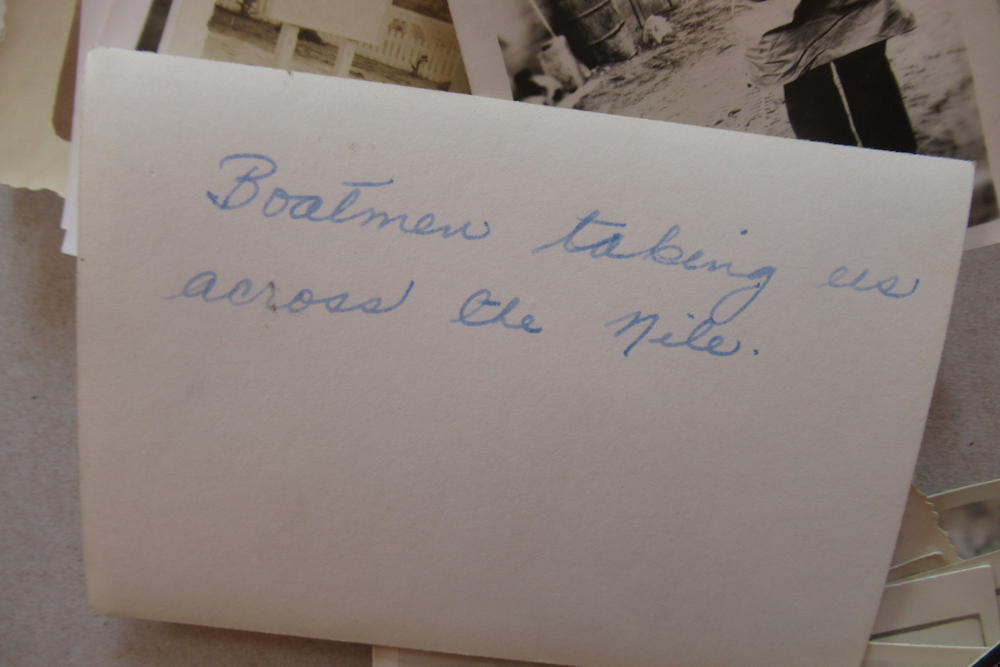 Boatmen taking us
across the Nile.